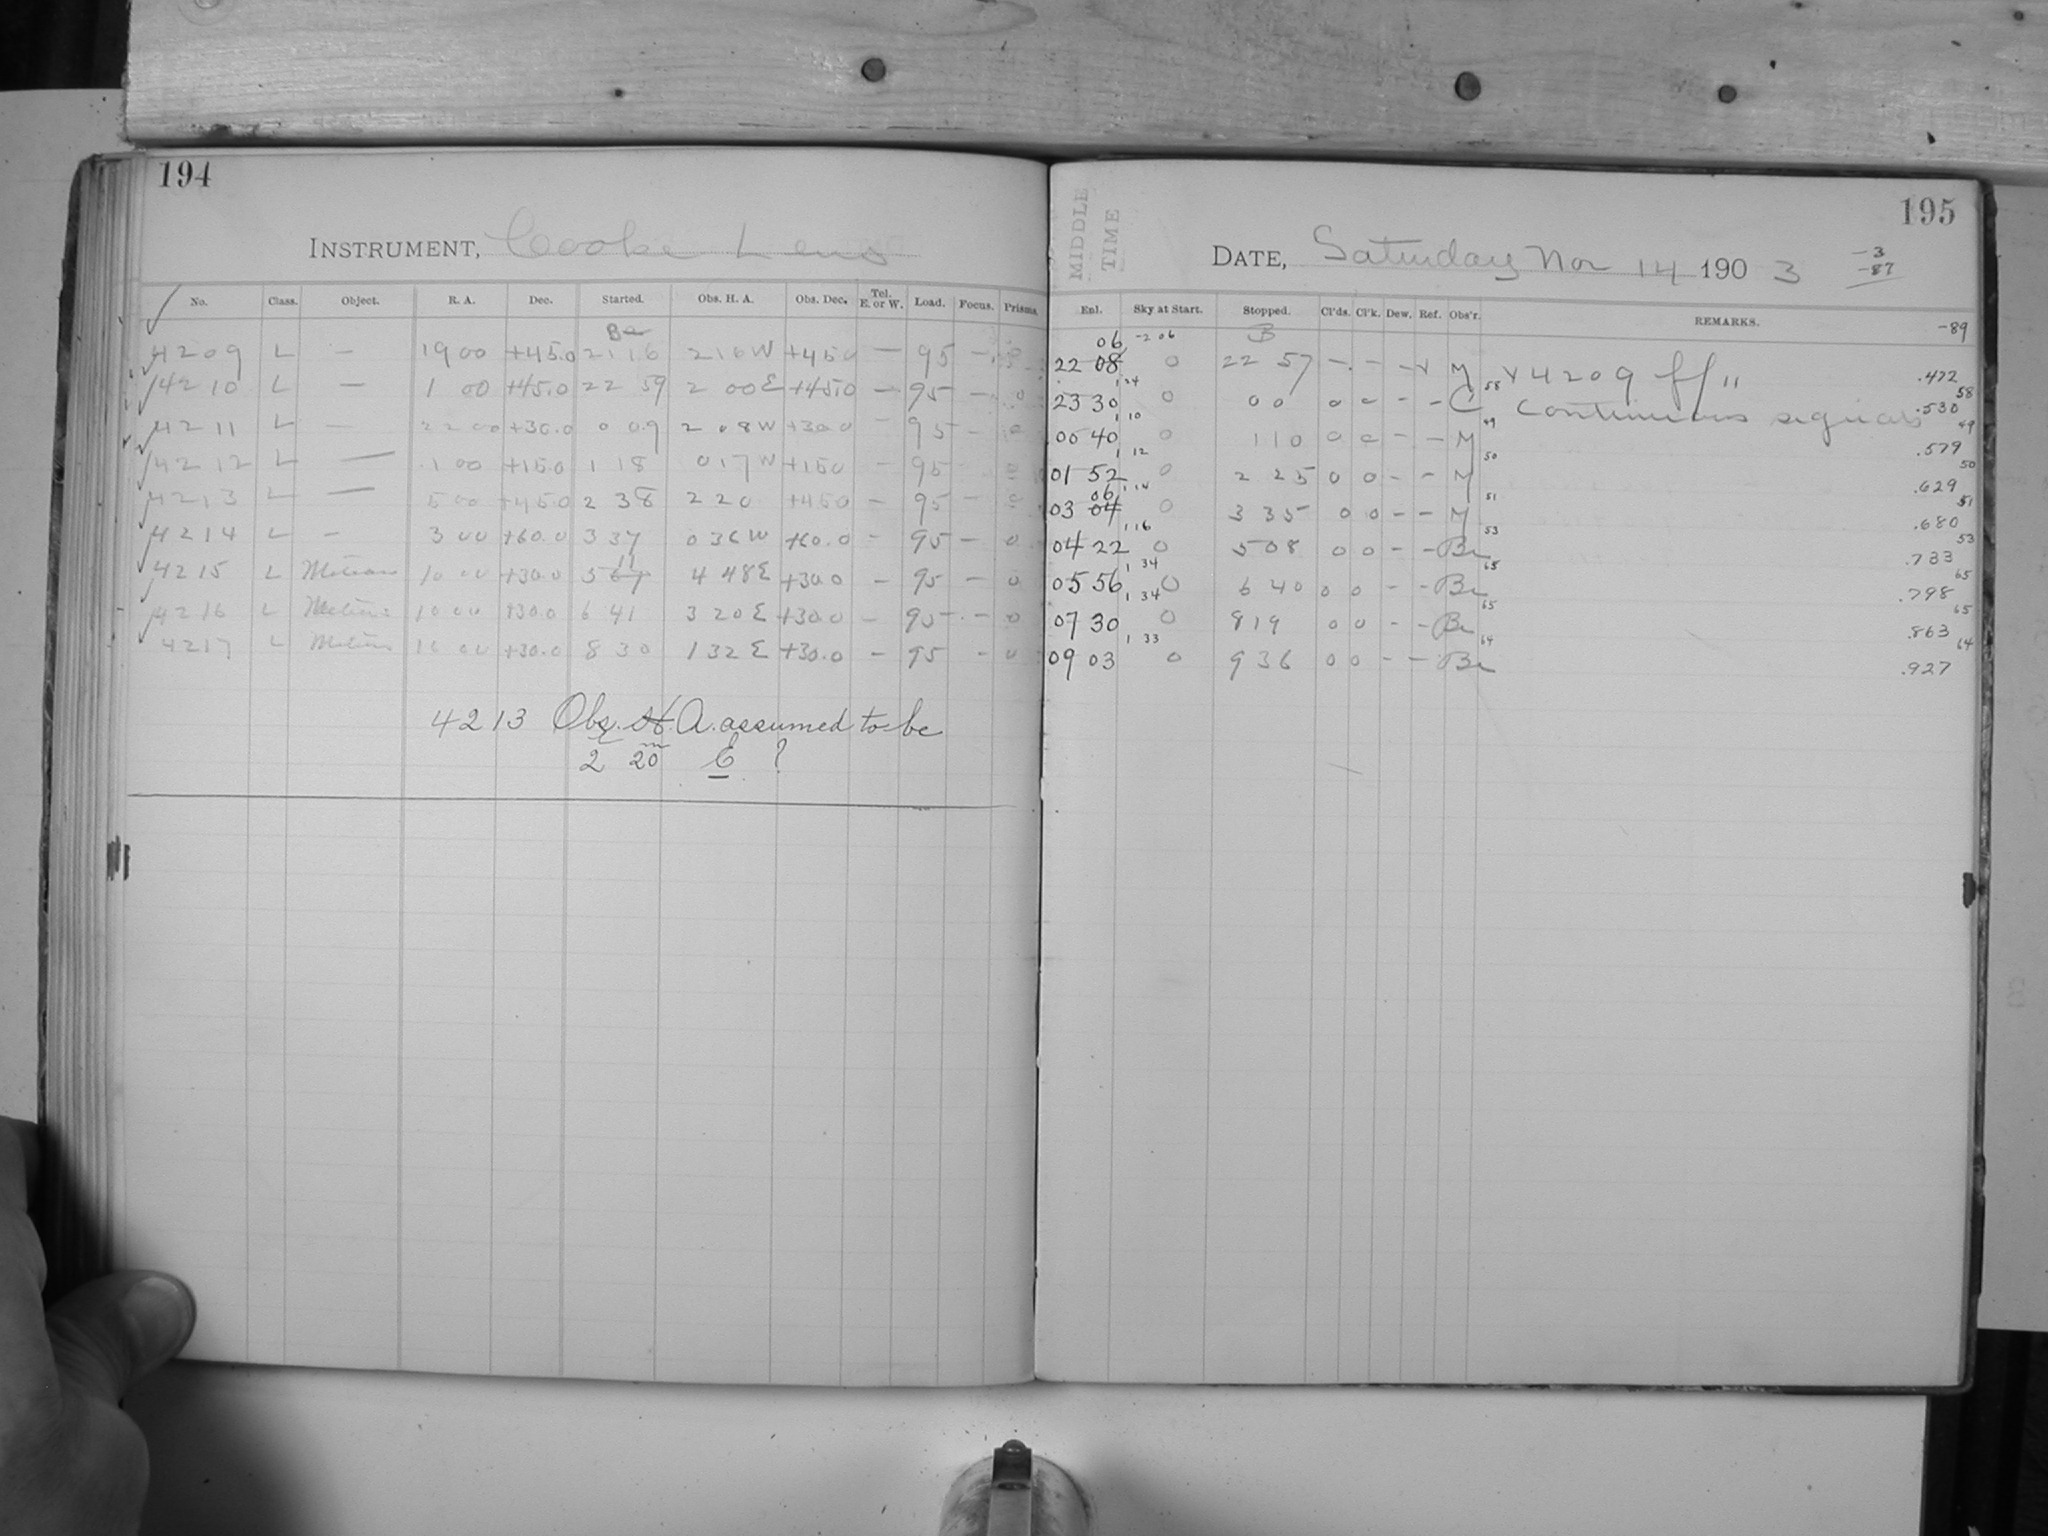 194
INSTRUMENT, Cooke Lens
No. Class. Object. R. A. Dec. Started. Obs. H. A. Obs. Dec. Tel. E. or W. Load. Focus. Prisms.
4209 L — 19 00 +45.0 21 16 2 16 W +45.0 — 95 — 0
4210 L — 1 00 +45.0 22 59 2 00 E +45.0 — 95 — 0
4211 L — 22 00 +30.0 0 09 2 08 W +30.0 — 95 — 0
4212 L — 1 00 +15.0 1 18 0 17 W +15.0 — 95 — 0
4213 L — 5 00 +45.0 2 38 2 20 +45.0 — 95 — 0
4214 L — 3 00 +60.0 3 37 0 36 W +60.0 — 95 — 0
4215 L Meteors 10 00 +30.0 5 11 4 48 E +30.0 — 95 — 0
4216 L Meteors 10 00 +30.0 6 41 3 20 E +30.0 — 95 — 0
4217 L Meteors 10 00 +30.0 8 30 1 32 E +30.0 — 95 — 0
4213 Obs. H. A. assumed to be
2 20 m E ?
195
MIDDLE
TIME
DATE, Saturday Nov 14 1903
-3
-87
Enl. Sky at Start. Stopped. Cl'ds. Cl'k. Dew. Ref. Obs'r. REMARKS.
-89
06 -2 06 B
22 08 0 22 57 — — — v M v 4209 ff" .472
1 24 58 58
23 30 0 0 0 0 0 — — C Continuous signals .530
1 10 49 49
00 40 0 1 10 0 0 — — M .579
1 12 50 50
01 52 0 2 25 0 0 — — M .629
06 1 14 51 51
03 04 0 3 35 0 0 — — M .680
1 16 53 53
04 22 0 5 08 0 0 — — Br .733
1 34 65 65
05 56 0 6 40 0 0 — — Br .798
1 34 65 65
07 30 0 8 19 0 0 — — Br .863
1 33 64 64
09 03 0 9 36 0 0 — — Br .927